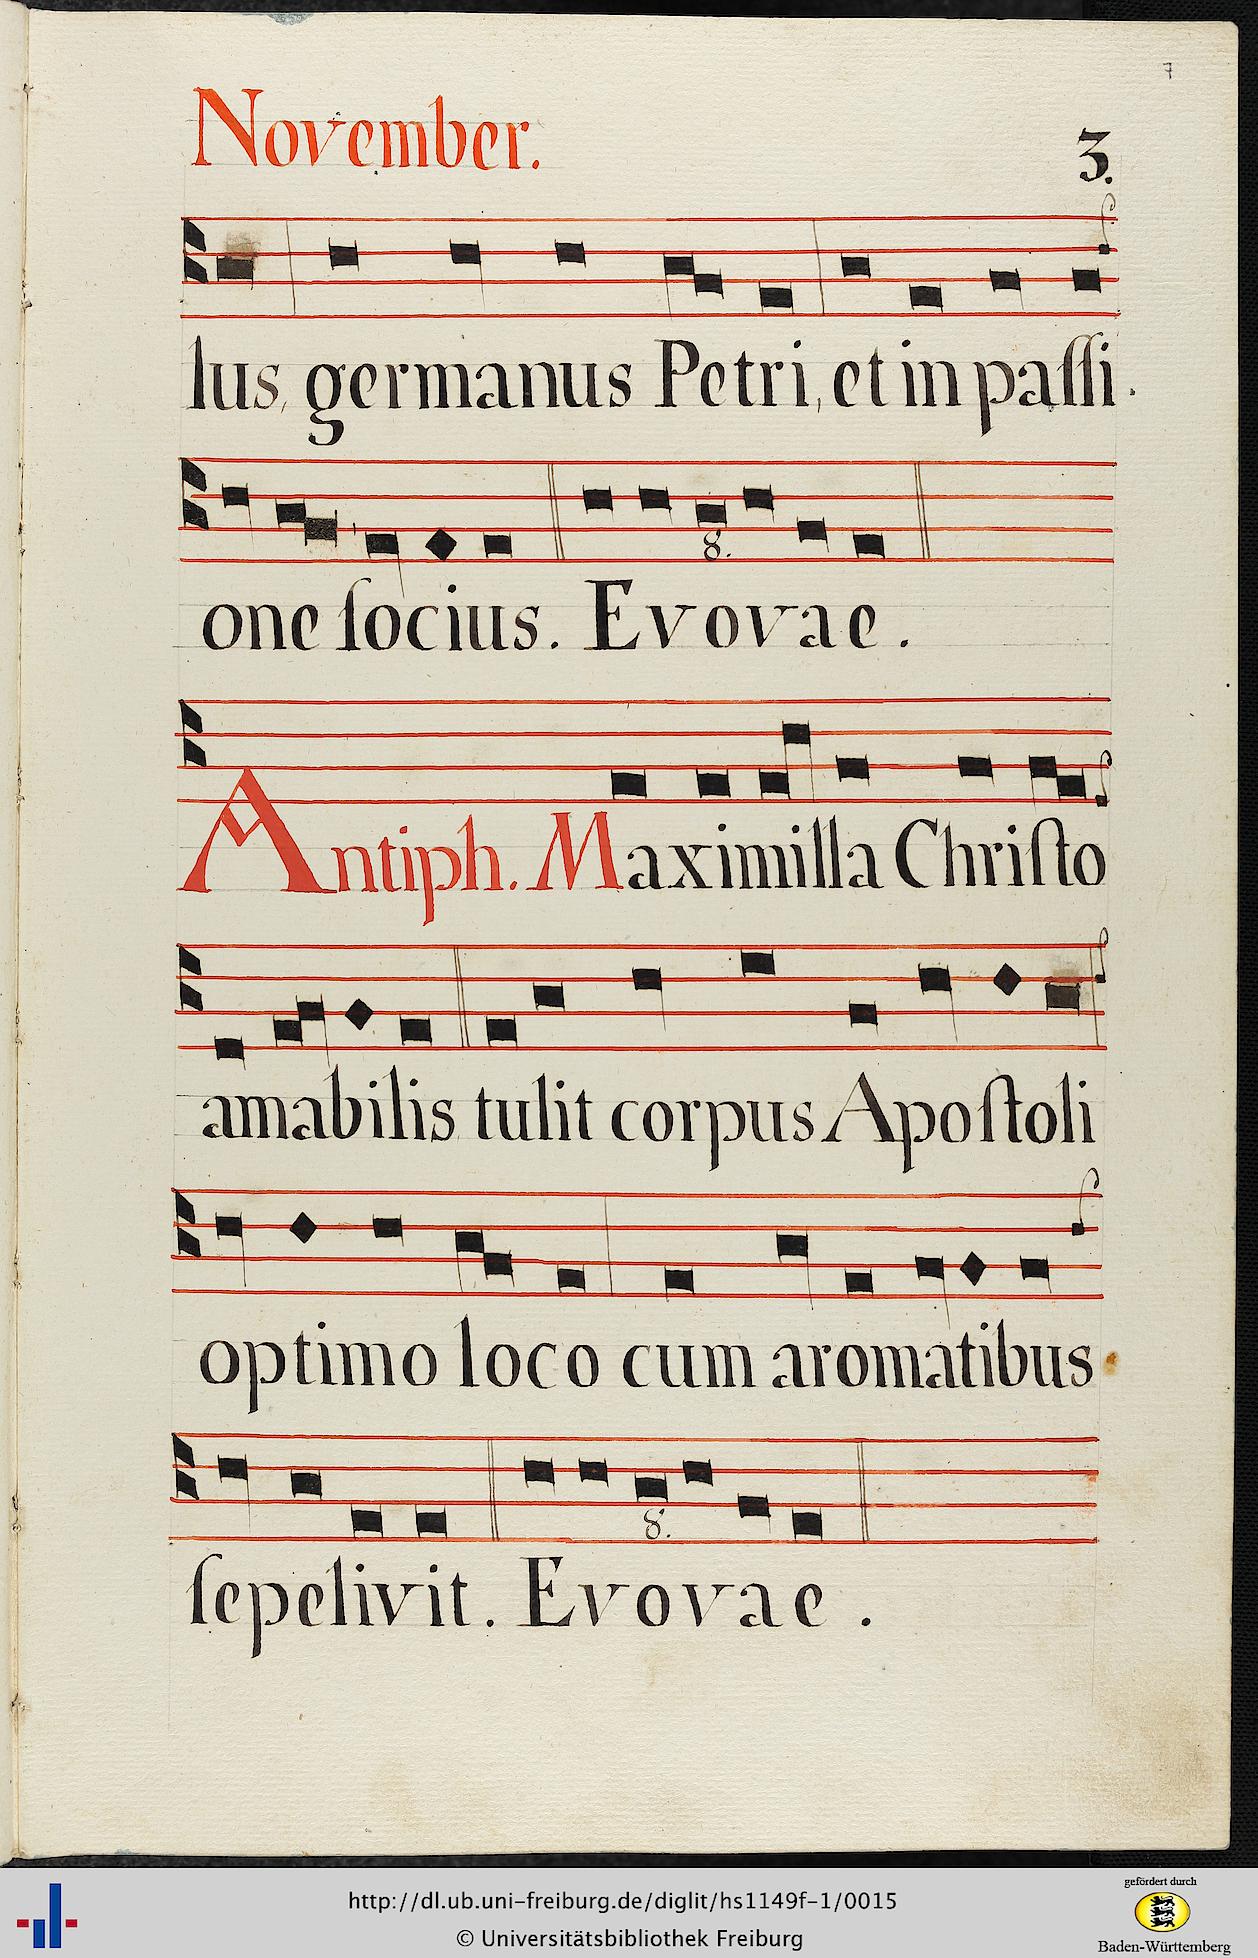 7
November.
3.
lus, germanus Petri, et in paſſi.
8.
one ſocius. Evovae.
Antiph. Maximilla Chriſto
amabilis tulit corpus Apoſtoli
optimo loco cum aromatibus
8.
ſepelivit. Evovae.
http://dl.ub.uni-freiburg.de/diglit/hs1149f-1/0015
© Universitätsbibliothek Freiburg
gefördert durch
Baden-Württemberg